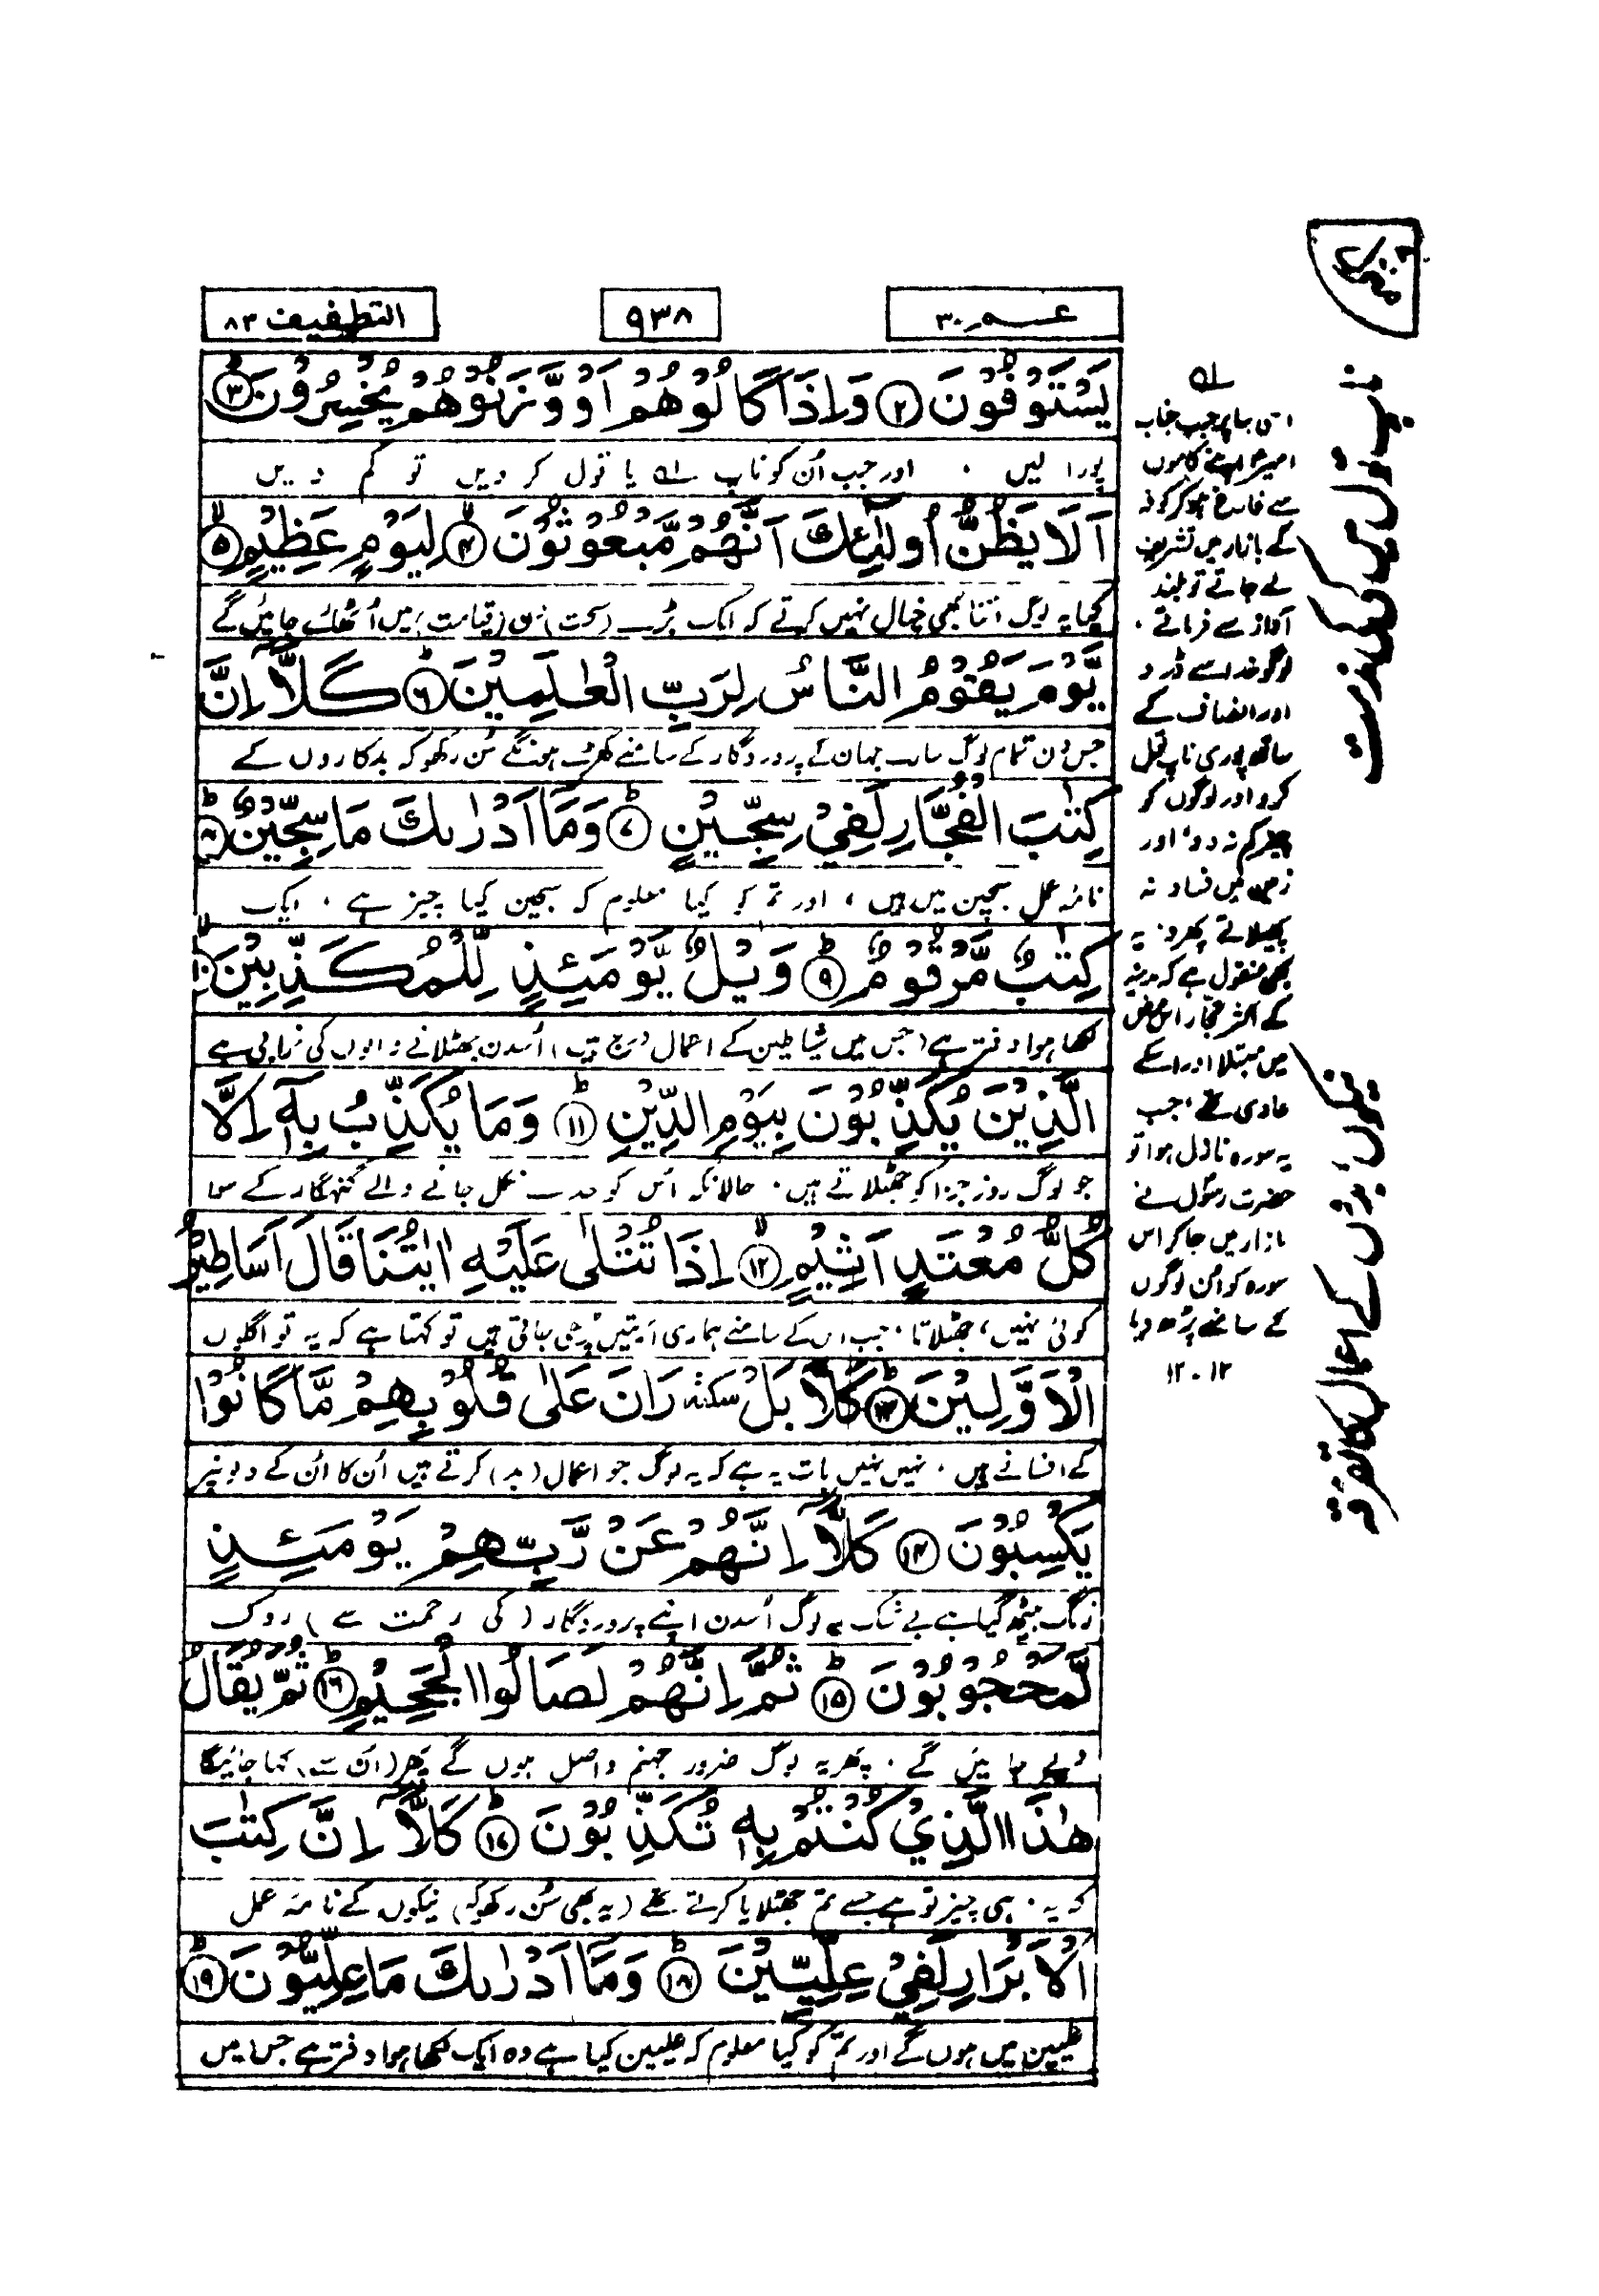 عـــم ٣٠
٩٣٨
التطفيف ٨٣
يَسْتَوْفُوْنَ ﴿٢﴾ وَاِذَا كَالُوْهُمْ اَوْ وَّزَنُوْهُمْ يُخْسِرُوْنَ ﴿٣﴾
پورا لیں ۔ اور جب اُن کو ناپ ۵۱ یا تول کر دیں تو کم دیں
اَلَا يَظُنُّ اُولٰٓئِكَ اَنَّهُمْ مَّبْعُوْثُوْنَ ﴿٤﴾ لِيَوْمٍ عَظِيْمٍ ﴿٥﴾
کیا یہ لوگ اتنا بھی خیال نہیں کرتے کہ ایک بڑے (سخت) دن (قیامت) میں اُٹھائے جائیں گے
يَّوْمَ يَقُوْمُ النَّاسُ لِرَبِّ الْعٰلَمِيْنَ ﴿٦﴾ كَلَّآ اِنَّ
جس دن تمام لوگ سارے جہان کے پروردگار کے سامنے کھڑے ہونگے سُن رکھو کہ بدکاروں کے
كِتٰبَ الْفُجَّارِ لَفِيْ سِجِّيْنٍ ﴿٧﴾ وَمَآ اَدْرٰىكَ مَا سِجِّيْنٌ ﴿٨﴾
نامۂ عمل سجین میں ہیں ، اور تم کو کیا معلوم کہ سجین کیا چیز ہے ، ایک
كِتٰبٌ مَّرْقُوْمٌ ﴿٩﴾ وَيْلٌ يَّوْمَئِذٍ لِّلْمُكَذِّبِيْنَ ﴿١٠﴾
لکھا ہوا دفتر ہے (جس میں شیاطین کے اعمال درج ہیں) اُسدن جھٹلانے والوں کی خرابی ہے
الَّذِيْنَ يُكَذِّبُوْنَ بِيَوْمِ الدِّيْنِ ﴿١١﴾ وَمَا يُكَذِّبُ بِهٖٓ اِلَّا
جو لوگ روز جزا کو جھٹلاتے ہیں ۔ حالانکہ اُس کو حد سے نکل جانے والے گنہگار کے سوا
كُلُّ مُعْتَدٍ اَثِيْمٍ ﴿١٢﴾ اِذَا تُتْلٰى عَلَيْهِ اٰيٰتُنَا قَالَ اَسَاطِيْرُ
کوئی نہیں جھٹلاتا ، جب اس کے سامنے ہماری آیتیں پڑھی جاتی ہیں تو کہتا ہے کہ یہ تو اگلوں
الْاَوَّلِيْنَ ﴿١٣﴾ كَلَّا بَلْ سكتہ رَانَ عَلٰى قُلُوْبِهِمْ مَّا كَانُوْا
کے افسانے ہیں ، نہیں نہیں بات یہ ہے کہ یہ لوگ جو اعمال (بد) کرتے ہیں اُن کا اُن کے دلونپر
يَكْسِبُوْنَ ﴿١٤﴾ كَلَّآ اِنَّهُمْ عَنْ رَّبِّهِمْ يَوْمَئِذٍ
زنگ بیٹھ گیا ہے بے شک یہ لوگ اُسدن اپنے پروردگار (کی رحمت سے) روک
لَّمَحْجُوْبُوْنَ ﴿١٥﴾ ثُمَّ اِنَّهُمْ لَصَالُوا الْجَحِيْمِ ﴿١٦﴾ ثُمَّ يُقَالُ
دیے جائیں گے ۔ پھر یہ لوگ ضرور جہنم واصل ہوں گے پھر (اُن سے) کہا جائیگا
هٰذَا الَّذِيْ كُنْتُمْ بِهٖ تُكَذِّبُوْنَ ﴿١٧﴾ كَلَّآ اِنَّ كِتٰبَ
کہ یہ وہی چیز تو ہے جسے تم جھٹلایا کرتے تھے (یہ بھی سُن رکھو کہ) نیکوں کے نامۂ عمل
الْاَبْرَارِ لَفِيْ عِلِّيِّيْنَ ﴿١٨﴾ وَمَآ اَدْرٰىكَ مَا عِلِّيُّوْنَ ﴿١٩﴾
علیین میں ہوں گے اور تم کو کیا معلوم کہ علیین کیا ہے وہ ایک لکھا ہوا دفتر ہے جس میں
۵۱
اسی بنا پر جب جناب
امیرؑ اپنے کاموں
سے فارغ ہو کر کوفہ
کے بازار میں تشریف
لے جاتے تو بلند
آواز سے فرماتے ۔
لوگو خدا سے ڈرو
اور انصاف کے
ساتھ پوری ناپ تول
کرو اور لوگوں کو
چیز کم نہ دو ، اور
زمین میں فساد نہ
پھیلاتے پھرو ۔ یہ
بھی منقول ہے کہ مدینہ
کے اکثر تجار اس مرض
میں مبتلا اور اسکے
عادی تھے ، جب
یہ سورہ نازل ہوا تو
حضرت رسولؐ نے
بازار میں جا کر اس
سورہ کو اُن لوگوں
کے سامنے پڑھ دیا
١٢ ۔ ١٢
منزل
ناپ تول میں کمی کی مذمت
نیکوں بدوں کے اعمال کا تفرقہ